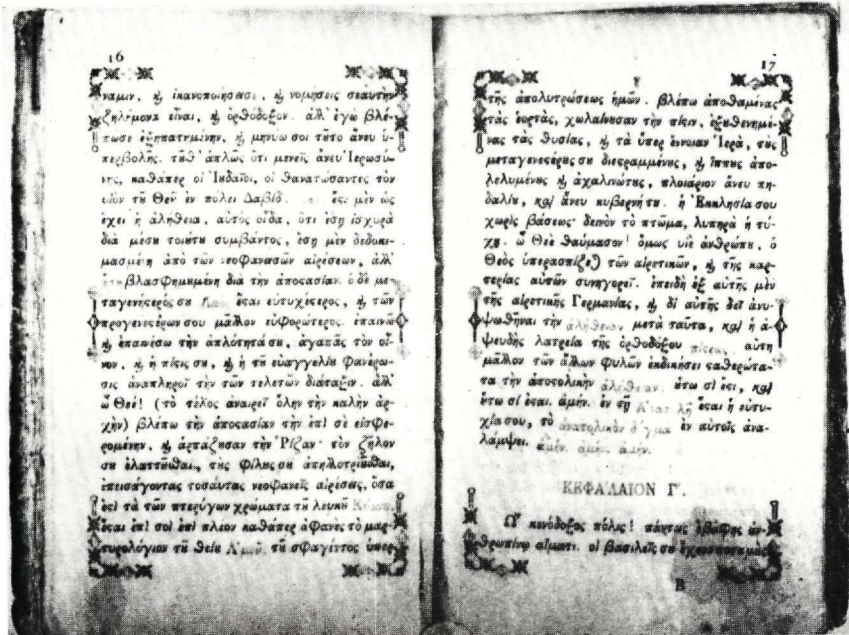 16
ναμιν, ϗ ἱκανοποίησεσε, ϗ νομήσεις σεαυτὴν
ζηλήμονα εἶναι, ϗ ὀρθόδοξον. ἀλλ' ἐγὼ βλέ-
πωσε ἐξηπατημένην, ϗ μηνύω σοι τȣ͂το ἄνευ ὑ-
περβολῆς. τȣ͂θ' ἁπλῶς ὅτι μενεῖς ἄνευ Ἱερωσύ-
νης, καθάπερ οἱ Ἰȣδαῖοι, οἱ θανατώσαντες τὸν
υἱὸν τȣ͂ Θεȣ͂ ἐν πόλει Δαβὶδ. ἔςι μὲν ὡς
ἔχει ἡ ἀλήθεια. αὐτὸς οἶδα, ὅτι ἔσῃ ἰσχυρὰ
διὰ μέσȣ τοιȣ́τȣ συμβάντος, ἔσῃ μὲν δεδοκι-
μασμένη ἀπὸ τῶν νεοφανεισῶν αἱρέσεων, ἀλλ'
βλασφημημένη διὰ τὴν ἀποςασίαν. ὁ δὲ με-
ταγενές̔ερός σȣ ἔςαι εὐτυχέςερος, ϗ τῶν
προγενεςέρων σου μᾶλλον εὐφορώτερος. ἐπαινῶ
ϗ ἐπαινέσω τὴν ἁπλότητά σȣ, ἀγαπᾷς τὸν οἶ-
νον. ϗ ἡ πίςις σȣ, ϗ ἡ τȣ͂ εὐαγγελίȣ φανέρω-
σις ἀναπληροῖ τὴν τῶν τελετῶν διάταξιν. ἀλλ'
ὦ Θεέ! (τὸ τέλος ἀναιρεῖ ὅλην τὴν καλὴν ἀρ-
χὴν) βλέπω τὴν ἀποςασίαν τὴν ἐπὶ σὲ εἰσφε-
ρομένην. ϗ ἁρπάζȣσαν τὴν Ῥίζαν· τὸν ζῆλον
σȣ ἐλαττȣ͂σθαι, τȣ̀ς φίλȣς σȣ ἀπηλλοτριῶσθαι,
ἐπεισάγοντας τοσαύτας νεοφανεῖς αἱρέσεις, ὅσα
ἐςὶ τὰ τῶν πτερύγων χρώματα τȣ͂ λευκȣ͂
ἔςαι ἐπὶ σοὶ ἐπὶ πλέον καθάπερ ἀφανὲς τὸ μαρ-
τυρολόγιον τȣ͂ θείȣ Ἀμνȣ͂ τȣ͂ σφαγέντος ὑπὲρ
17
τῆς ἀπολυτρώσεως ἡμῶν. βλέπω ἀποθαμένας
τὰς ἑορτάς, χωλαίνȣσαν τὴν πίςιν, ἐξȣθενημέ-
νας τὰς θυσίας, ϗ τὰ ὑπὲρ ἔννοιαν Ἱερὰ, τȣ̀ς
μεταγενεςέρȣς σȣ διεςραμμένȣς, ϗ ἵππȣς ἀπο-
λελυμένȣς ϗ ἀχαλινώτȣς, πλοιάριον ἄνευ πη-
δαλίȣ, καὶ ἄνευ κυβερνήτȣ. ἡ Ἐκκλησία σου
χωρὶς βάσεως· δεινὸν τὸ πτῶμα, λυπηρὰ ἡ τύ-
χη. ὦ Θεὲ θαύμασον! ὅμως υἱὲ ἀνθρώπȣ, ὁ
Θεὸς ὑπερασπίζεται τῶν αἱρετικῶν, ϗ τῆς καρ-
τερίας αὐτῶν συνηγορεῖ. ἐπειδὴ ἐξ αὐτῆς μὲν
τῆς αἱρετικῆς Γερμανίας, ϗ δι' αὐτῆς δεῖ ἀνυ-
ψωθῆναι τὴν ἀλήθειαν μετὰ ταῦτα, καὶ ἡ ἀ-
ψευδὴς λατρεία τῆς ὀρθοδόξου πίςεως. αὕτη
μᾶλλον τῶν ἄλλων φυλῶν ἐκδικήσει ςαθερώτα-
τα τὴν ἀποςολικὴν ἀλήθειαν. ȣ̓́τω σί ἐςι, καὶ
ȣ̓́τω σί ἔςαι. ἀμήν. ἐν τῇ Ἀνατολῇ ἔςαι ἡ εὐτυ-
χία σου, τὸ ἀνατολικὸν δόγμα ἐν αὐτοῖς ἀνα-
λάμψει. ἀμήν. ἀμήν. ἀμήν.
ΚΕΦΑΛΑΙΟΝ Γ'.
Ὦ κενόδοξος πόλις! πάντως ἐβάφης ἀν-
θρωπίνῳ αἵματι. οἱ βασιλεῖς σȣ
B